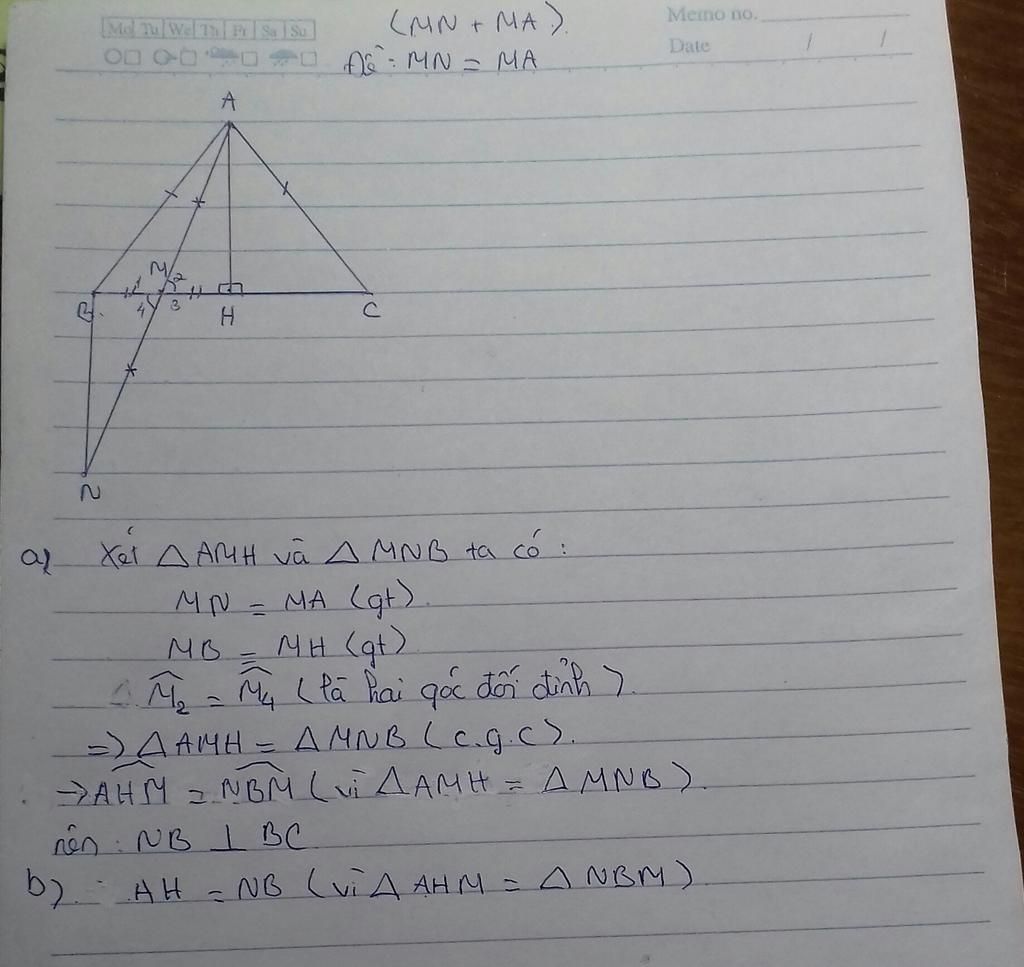 Mo Tu We Th Fr Sa Su
Memo no.
Date / /
(MN + MA).
Đề: MN = MA
A
M
1 2
B 4 3 H C
N
a) Xét △ AMH và △ MNB ta có:
MN = MA (gt).
MB = MH (gt)
M̂₂ = M̂₄ (là hai góc đối đỉnh).
=> △ AMH = △ MNB (c.g.c).
→ AHM = NBM (vì △ AMH = △ MNB).
nên: NB ⊥ BC
b) AH = NB (vì △ AHM = △ NBM)